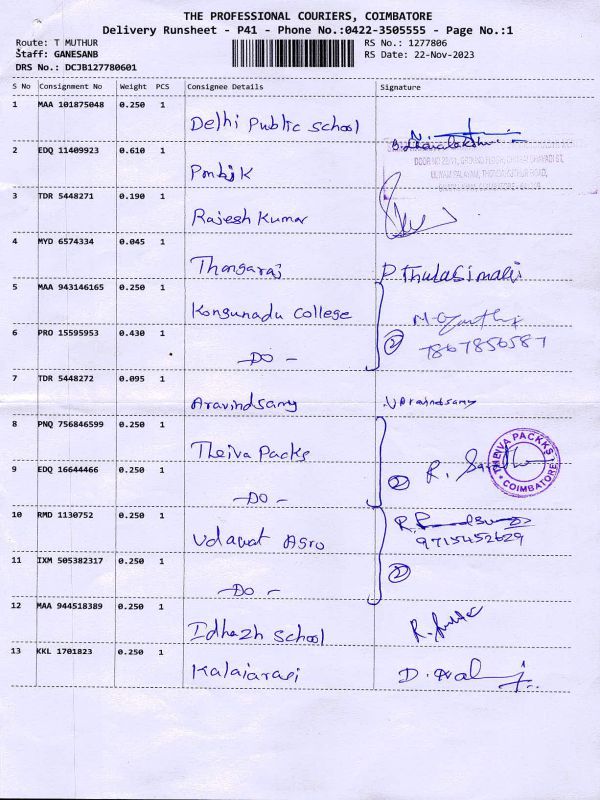 THE PROFESSIONAL COURIERS, COIMBATORE
Delivery Runsheet - P41 - Phone No.:0422-3505555 - Page No.:1
Route: T MUTHUR RS No.: 1277806
Staff: GANESANB RS Date: 22-Nov-2023
DRS No.: DCJB127780601
S No Consignment No Weight PCS Consignee Details Signature
1 MAA 101875048 0.250 1
Delhi Public School
2 EDQ 11409923 0.610 1
3 TDR 5448271 0.190 1
Rajesh Kumar
4 MYD 6574334 0.045 1
Thangaraj P Thulasimali
5 MAA 943146165 0.250 1
Kongunadu College
6 PRO 15595953 0.430 1
- DO - 2 7867856587
7 TDR 5448272 0.095 1
Aravindsamy V Aravindsamy
8 PNQ 756846599 0.250 1
Theiva Packs
THEIVA PACKKS
COIMBATORE
9 EDQ 16644466 0.250 1
- DO - 2
10 RMD 1130752 0.250 1
Udawat Agro 9715452629
11 IXM 505382317 0.250 1
- DO - 2
12 MAA 944518389 0.250 1
Idhazh School
13 KKL 1701823 0.250 1
Kalaiarasi